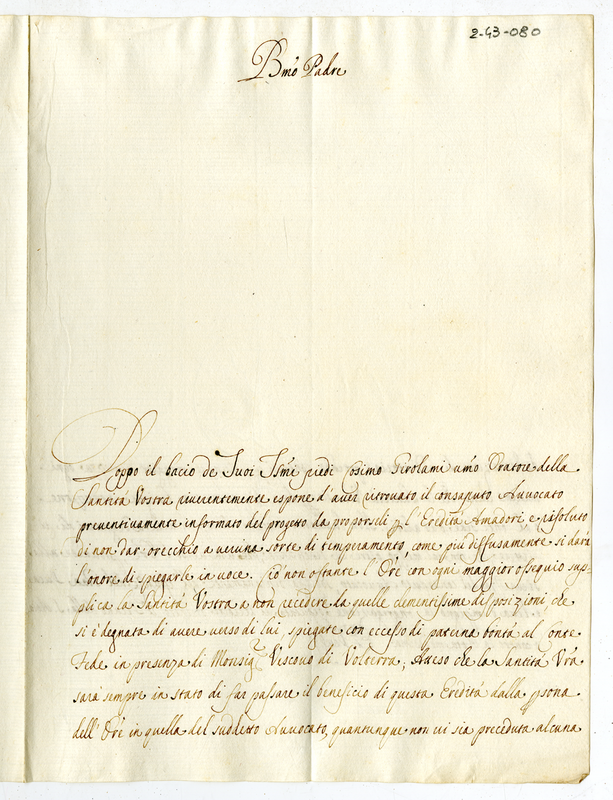 2-43-080
Bmo Padre
Doppo il bacio de Suoi Ssmi piedi Cosimo Girolami umo Oratore della
Santità Vostra riverentemente espone d'aver ritrovato il consaputo Avvocato
preventivamente informato del progetto da proporseli p l'Eredità Amadori, e risoluto
di non dar orecchio a veruna sorte di temperamento, come più diffusamente si darà
l'onore di spiegarle in voce. Ciò non ostante l'Ore con ogni maggior ossequio sup-
plica la Santità Vostra a non recedere da quelle clementissime disposizioni, che
si è degnata di avere verso di lui, spiegate con eccesso di paterna bontà al Conte
Fede in presenza di Monsigr Vescovo di Volterra; Atteso che la Santità Vra
sarà sempre in stato di far passare il beneficio di questa Eredità dalla psona
dell'Ore in quella del suddetto Avvocato, quantunque non vi sia preceduta alcuna